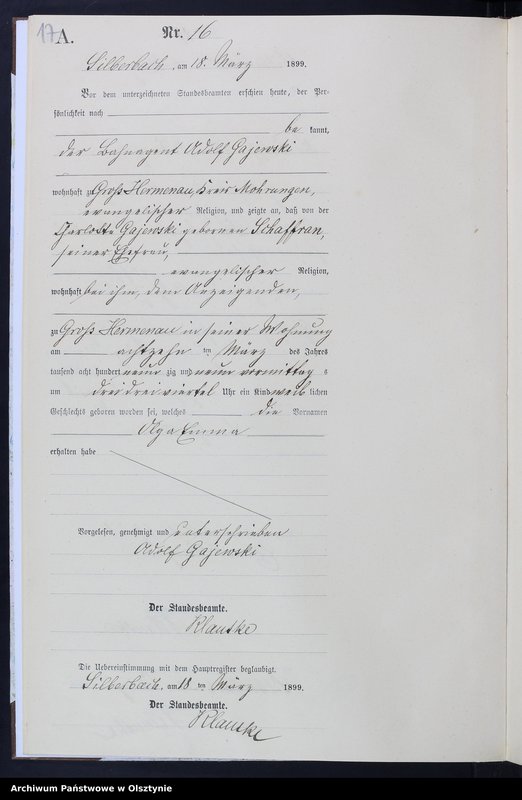 17 A. Nr. 16
Silberbach, am 18. März 1899.
Vor dem unterzeichneten Standesbeamten erschien heute, der Per-
sönlichkeit nach
be kannt,
der Bahnagent Adolf Gajewski
wohnhaft zu Groß Hermenau, Kreis Mohrungen,
evangelischer Religion, und zeigte an, daß von der
Charlotte Gajewski geborenen Schaffran,
seiner Ehefrau,
evangelischer Religion,
wohnhaft bei ihm, dem Anzeigenden,
zu Groß Hermenau in seiner Wohnung
am achtzehn ten März des Jahres
tausend acht hundert neun zig und neun vormittag s
um drei dreiviertel Uhr ein Kind weib lichen
Geschlechts geboren worden sei, welches die Vornamen
Olga Emma
erhalten habe
Vorgelesen, genehmigt und unterschrieben
Adolf Gajewski
Der Standesbeamte.
Klautke
Die Uebereinstimmung mit dem Hauptregister beglaubigt.
Silberbach, am 18 ten März 1899.
Der Standesbeamte.
Klautke
Archiwum Państwowe w Olsztynie